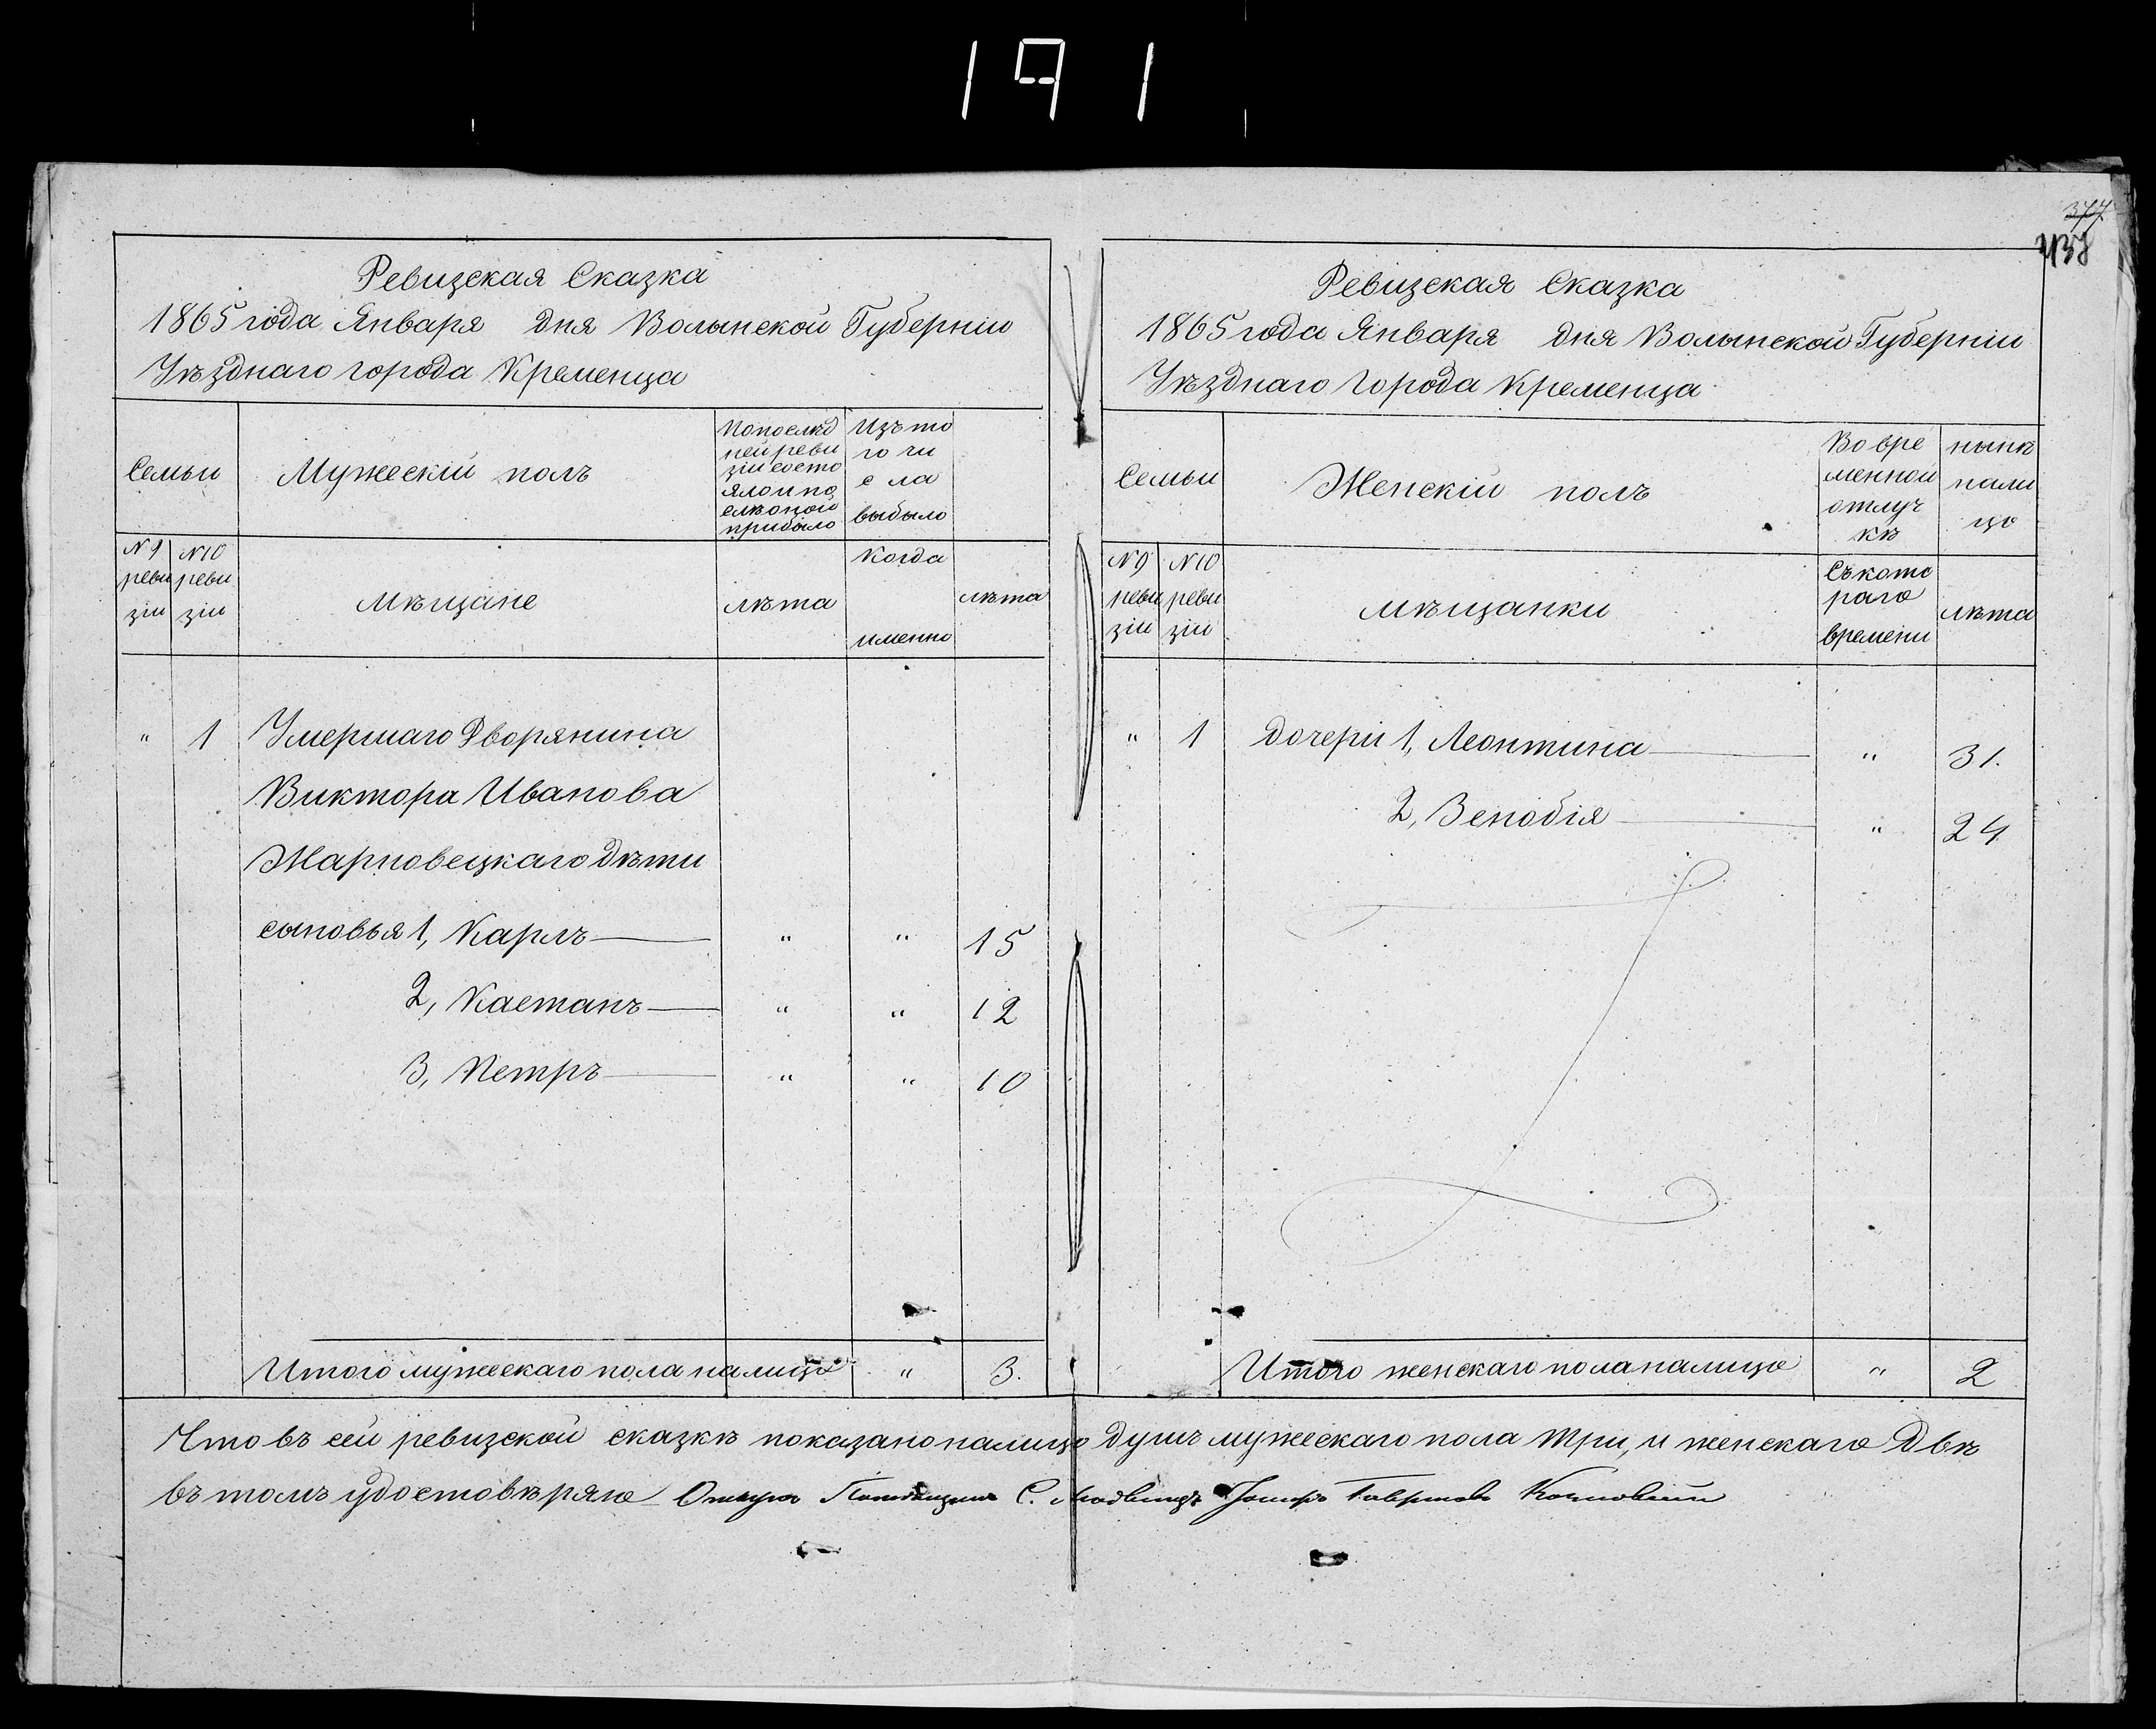 191
377
438
Ревизская Сказка
1865 года Января дня Волынской Губерніи
Уѣзднаго города Кременца
Семьи
Мужескій полъ
По послѣд
ней реви
зіи состо
яло и по
слѣ оной
прибыло
Изъ то
го чи
сла
выбыло
N 9
реви
зіи
N 10
реви
зіи
Мѣщане
лѣта
когда
именно
лѣта
" 1 Умершаго Дворянина
Виктора Иванова
Жарновецкаго дѣти
сыновья 1, Карлъ " " 15
2, Каетанъ " " 12
3, Петръ " " 10
Итого мужескаго пола налицо " 3.
Ревизская Сказка
1865 года Января дня Волынской Губерніи
Уѣзднаго Города Кременца
Семьи
Женскій полъ
Во вре
менной
отлуч
кѣ
нынѣ
нали
цо
N 9
реви
зіи
N 10
реви
зіи
мѣщанки
Съ кото
раго
времени
лѣта
" 1 Дочери 1, Леонтина " 31.
2, Зенобія " 24
Итого женскаго пола налицо " 2
Что въ сей ревизской сказкѣ показано налицо душъ мужескаго пола три, и женскаго двѣ
въ томъ удостовѣряю